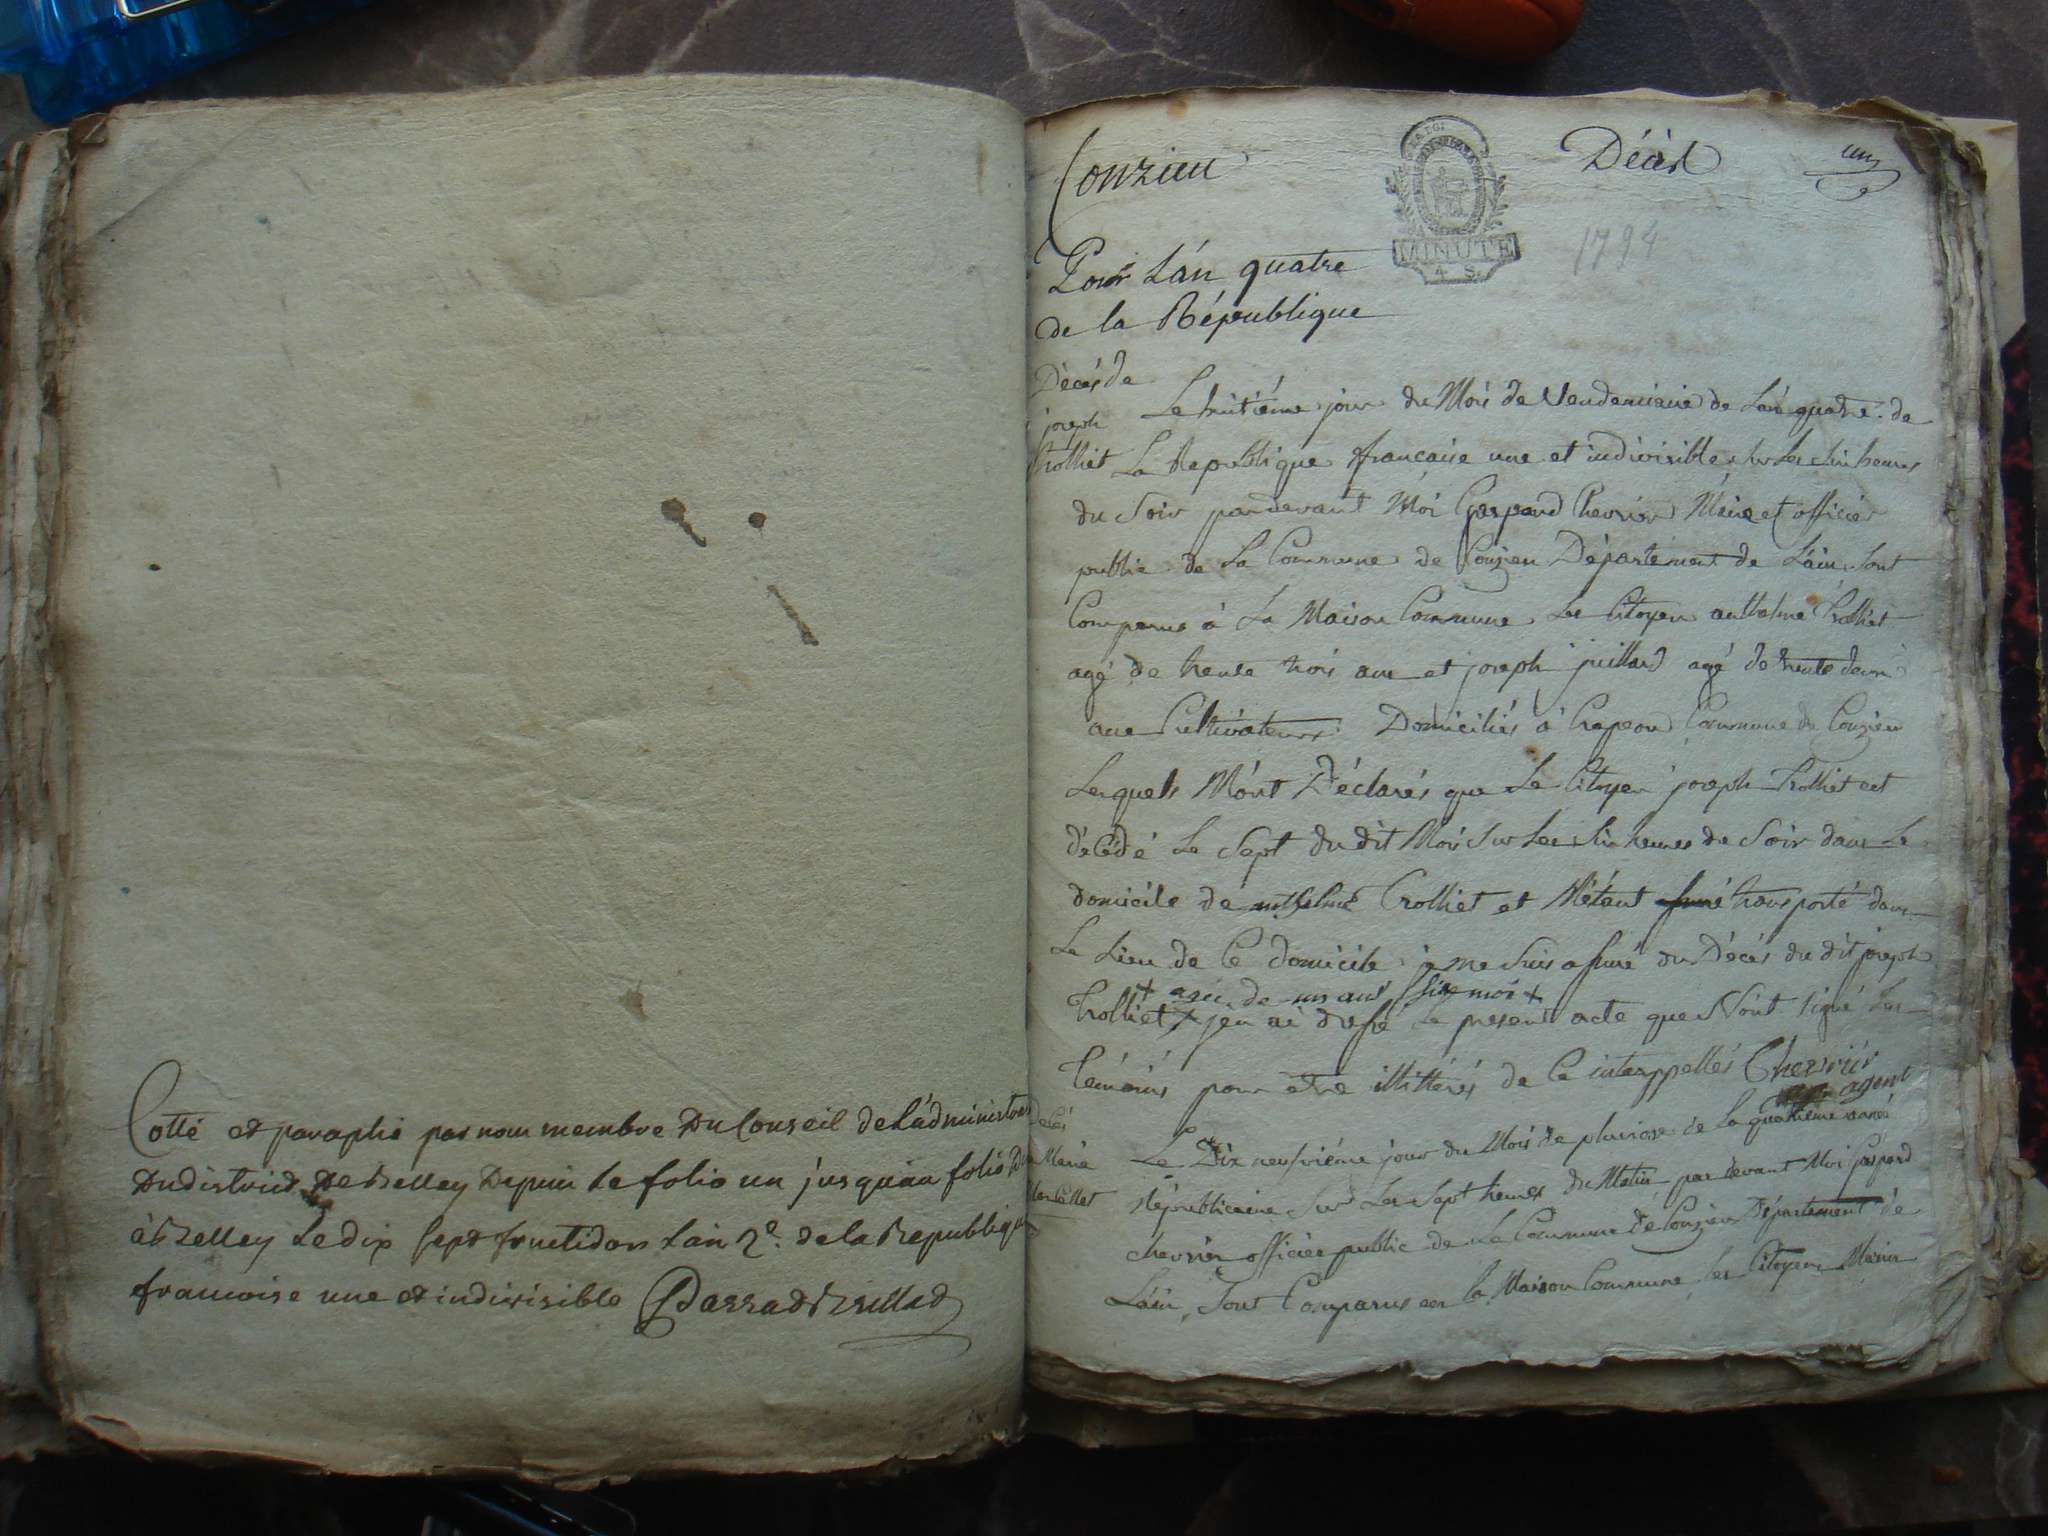 Cotté et paraphé par nous membre du Conseil de l'administrat
du district de Belley depuis le folio un jusquau folio
à Belley le dix sept fructidor l'an 2e. de la Republique
francoise une et indivisible
Conzieu
Décès
un
MINUTE
4 S.
1794
Pour l'an quatre
de la République
Décès de
joseph
trolliet
Le huitième jour du Mois de Vendemiaire de l'an quatre de
La Republique francaise une et indivisible sur les six heures
du Soir pardevant Moi Gaspard Chevrier Maire et officier
public de La Commune de Conzieu Département de l'ain Sont
Comparus à La Maison Commune Les Citoyens anthelme Trolliet
agé de trente trois ans et joseph juillard agé de trente deux
ans Cultivateurs Domiciliés à Crapeou Commune de Conzieu
Lesquels M'ont Déclarés que Le Citoyen joseph Trolliet est
décédé Le Sept du dit Mois sur Les six heures de Soir dans Le
domicile de anthelme Trolliet et M'étant transporté dans
Le Lieu de Ce domicile je me suis assuré du Décès du dit joseph
+ agée de un ans six mois +
Trolliet + jen ai dressé Le present acte que N'ont signé Les
Témoins pour etre illitterés de Ce interppellés Chevrier
agent
Décès
Marie
Le Dix neufvième jour du Mois de pluviose de La quatrième année
Républicaine Sur Les Sept heures du Matin pardevant Moi gaspard
chevrier officier public de La Commune de Conzieu Département de
L'ain, Sont Comparus en la Maison Commune les Citoyens Marin